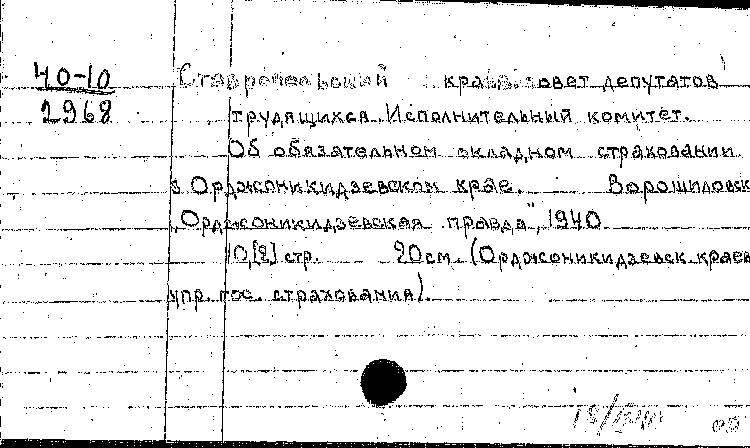 40-10
2968
Ставропольский краев. совет депутатов
трудящихся. Исполнительный комитет.
Об обязательном окладном страховании
в Орджоникидзевском крае. Ворошиловск
„Орджоникидзевская правда", 1940
10,[2] стр. 20см. (Орджоникидзевск. краев
упр. гос. страхования).